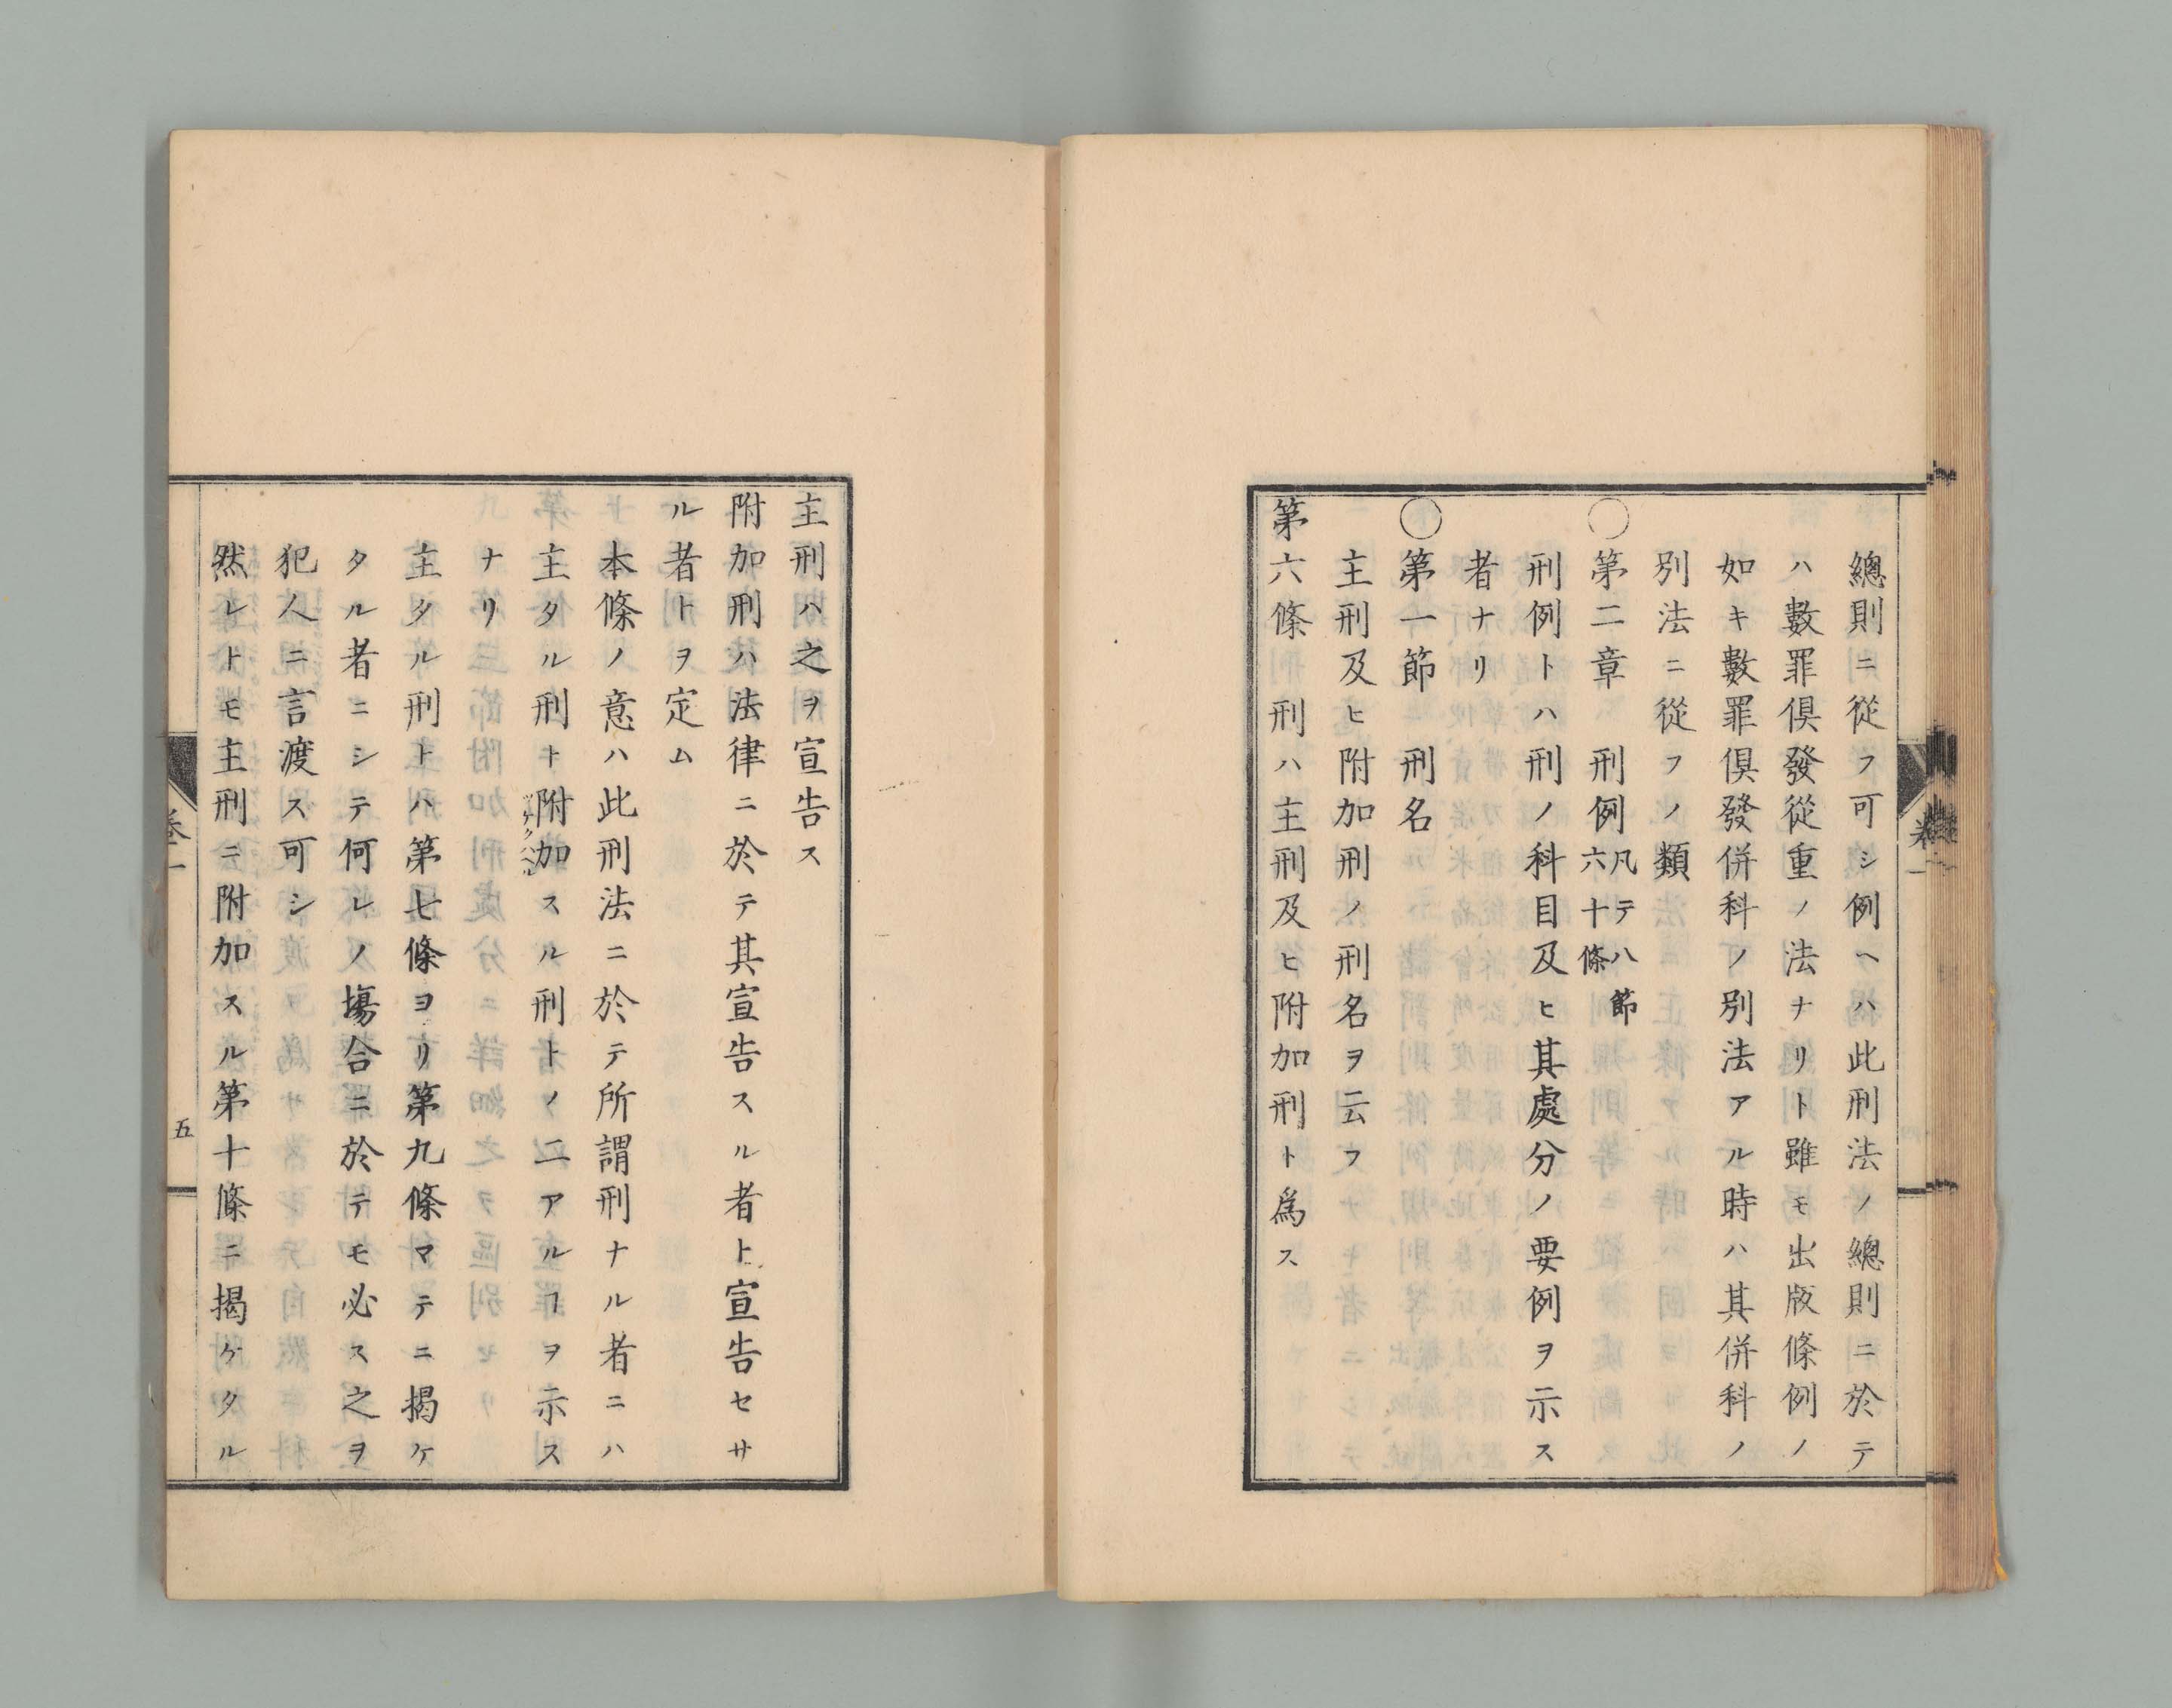 總則ニ從フ可シ例ヘハ此刑法ノ總則ニ於テ
ハ數罪俱發從重ノ法ナリト雖モ出版條例ノ
如キ數罪俱發併科ノ別法アル時ハ其併科ノ
別法ニ從フノ類
○第二章 刑例 凡テ八節
六十條
刑例トハ刑ノ科目及ヒ其處分ノ要例ヲ示ス
者ナリ
○第一節 刑名
主刑及ヒ附加刑ノ刑名ヲ云フ
第六條 刑ハ主刑及ヒ附加刑ト爲ス
主刑ハ之ヲ宣告ス
附加刑ハ法律ニ於テ其宣告スル者ト宣告セサ
ル者トヲ定ム
本條ノ意ハ此刑法ニ於テ所謂刑ナル者ニハ
主タル刑ト附加スル刑トノ二アルヿヲ示ス
ナリ
主タル刑トハ第七條ヨリ第九條マテニ揭ケ
タル者ニシテ何レノ塲合ニ於テモ必ス之ヲ
犯人ニ言渡ス可シ
然レトモ主刑ニ附加スル第十條ニ揭ケタル
卷一
五
卷一